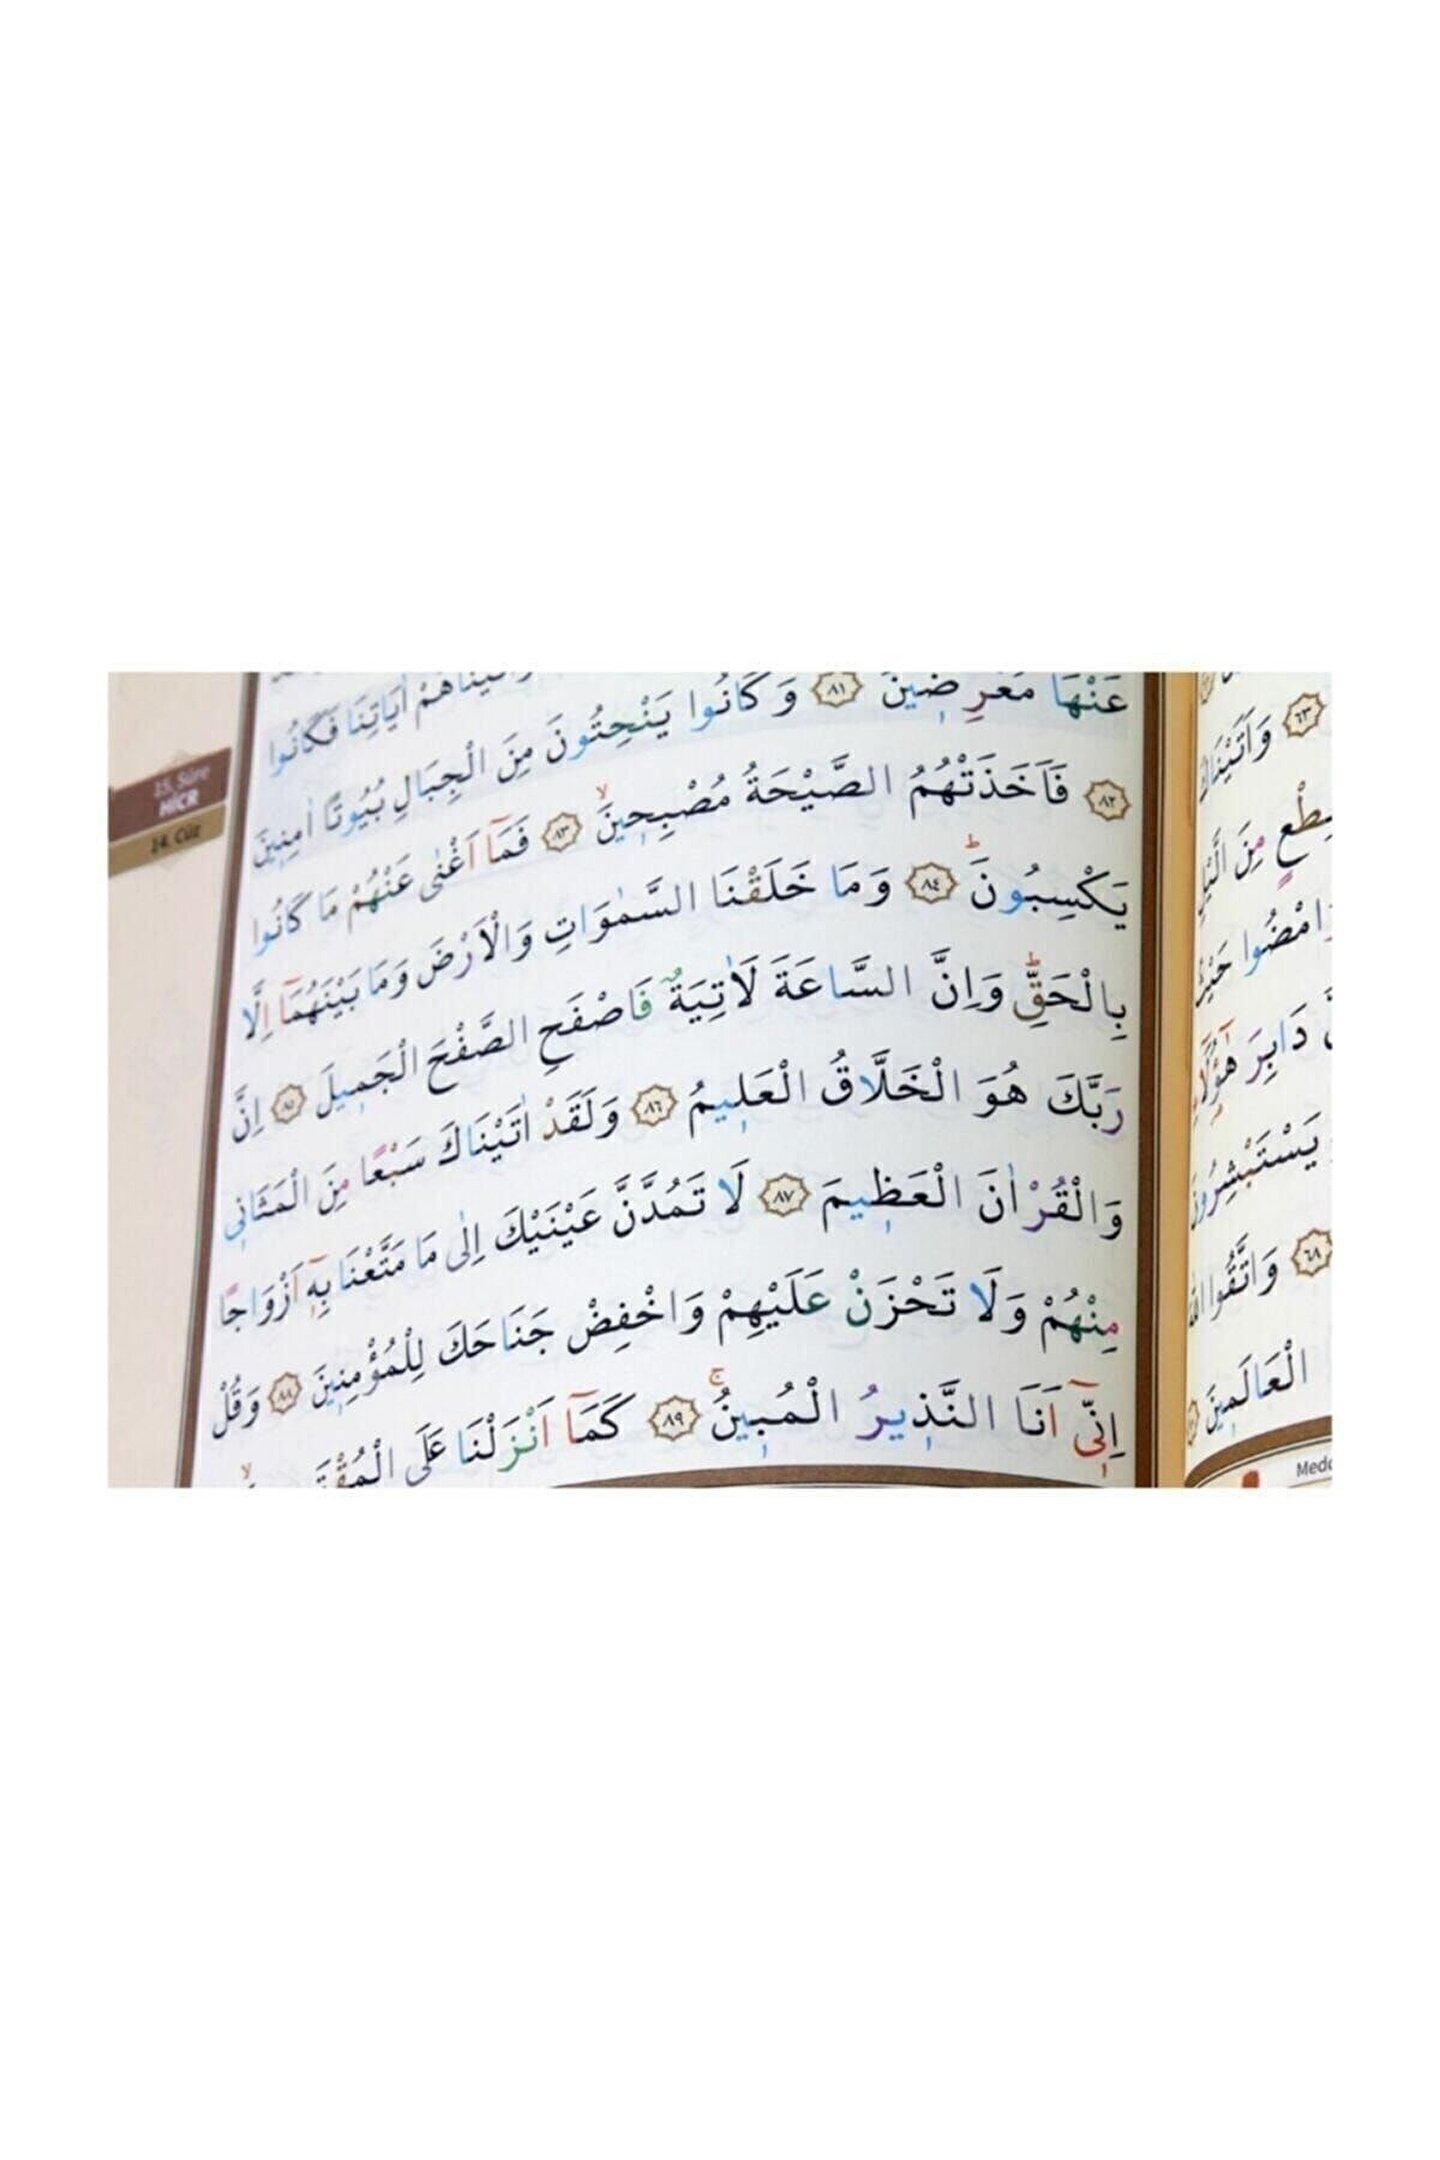 اٰيَاتِنَا فَكَانُوا
عَنْهَا مُعْرِضِينَ ﴿٨١﴾ وَكَانُوا يَنْحِتُونَ مِنَ الْجِبَالِ بُيُوتًا اٰمِنِينَ
﴿٨٢﴾ فَاَخَذَتْهُمُ الصَّيْحَةُ مُصْبِحِينَۙ ﴿٨٣﴾ فَمَٓا اَغْنٰى عَنْهُمْ مَا كَانُوا
يَكْسِبُونَۜ ﴿٨٤﴾ وَمَا خَلَقْنَا السَّمٰوَاتِ وَالْاَرْضَ وَمَا بَيْنَهُمَٓا اِلَّا
بِالْحَقِّۜ وَاِنَّ السَّاعَةَ لَاٰتِيَةٌ فَاصْفَحِ الصَّفْحَ الْجَمِيلَ ﴿٨٥﴾ اِنَّ
رَبَّكَ هُوَ الْخَلَّاقُ الْعَلِيمُ ﴿٨٦﴾ وَلَقَدْ اٰتَيْنَاكَ سَبْعًا مِنَ الْمَثَانِي
وَالْقُرْاٰنَ الْعَظِيمَ ﴿٨٧﴾ لَا تَمُدَّنَّ عَيْنَيْكَ اِلٰى مَا مَتَّعْنَا بِهٖٓ اَزْوَاجًا
مِنْهُمْ وَلَا تَحْزَنْ عَلَيْهِمْ وَاخْفِضْ جَنَاحَكَ لِلْمُؤْمِنِينَ ﴿٨٨﴾ وَقُلْ
اِنِّٓي اَنَا النَّذِيرُ الْمُبِينُۚ ﴿٨٩﴾ كَمَٓا اَنْزَلْنَا عَلَى
15. Sûre
HİCR
14. Cüz
﴿٦٣﴾ وَاَتَيْنَاكَ
مِنَ الَّيْلِ
وَامْضُوا حَيْثُ
دَابِرَ هٰٓؤُ۬لَٓاءِ
يَسْتَبْشِرُونَ
﴿٦٨﴾ وَاتَّقُوا اللّٰهَ
الْعَالَمِينَ